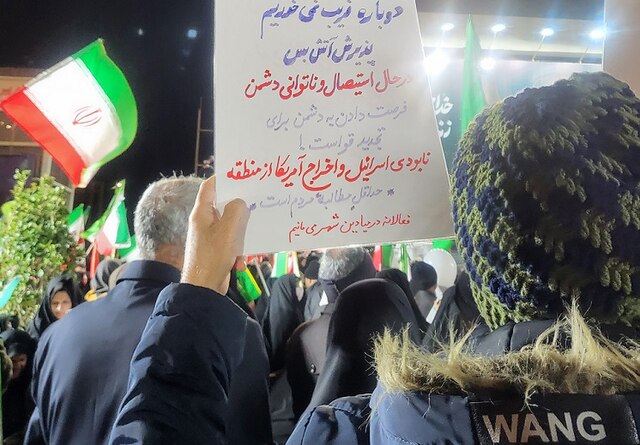 دوباره فریب نمی‌خوریم
پذیرش آتش بس
در حال استیصال و ناتوانی دشمن
فرصت دادن به دشمن برای
تجدید قواست یا
نابودی اسرائیل و اخراج آمریکا از منطقه
حداقل مطالبهٔ مردم است
فعالانه در میادین شهری بمانیم
خدا
WANG